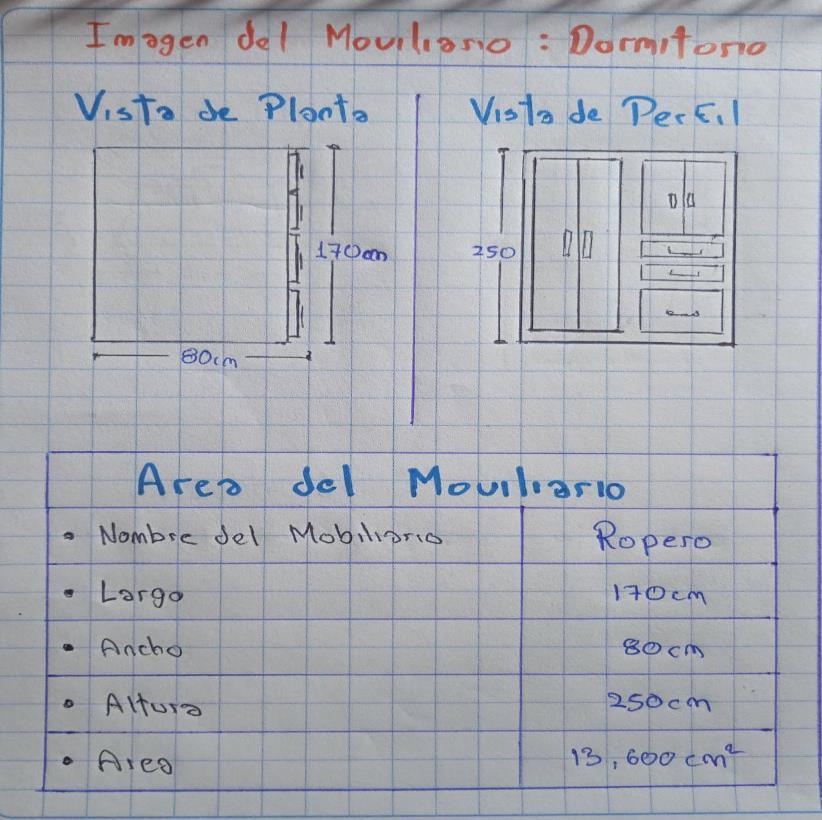 Imagen del Moviliario : Dormitorio
Vista de Planta
Vista de Perfil
170cm
80cm
250
Area del Moviliario
• Nombre del Mobiliario Ropero
• Largo 170cm
• Ancho 80cm
• Altura 250cm
• Area 13,600 cm²